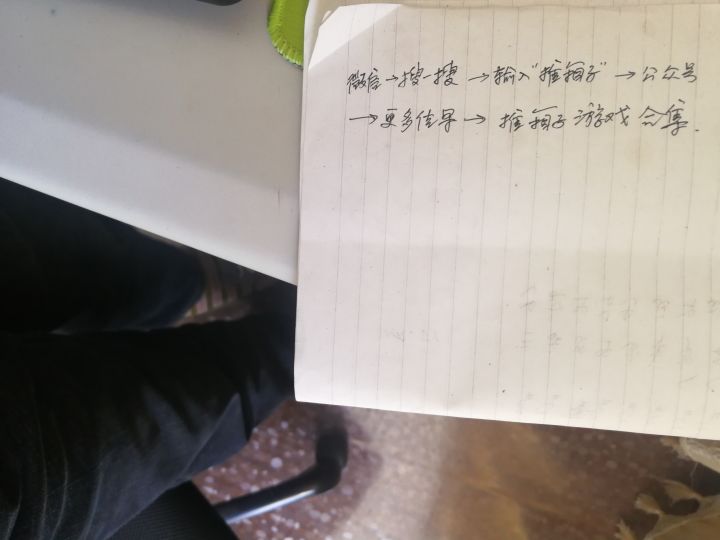 微信→搜一搜→输入"推箱子"→公众号
→更多结果→推箱子游戏合集.